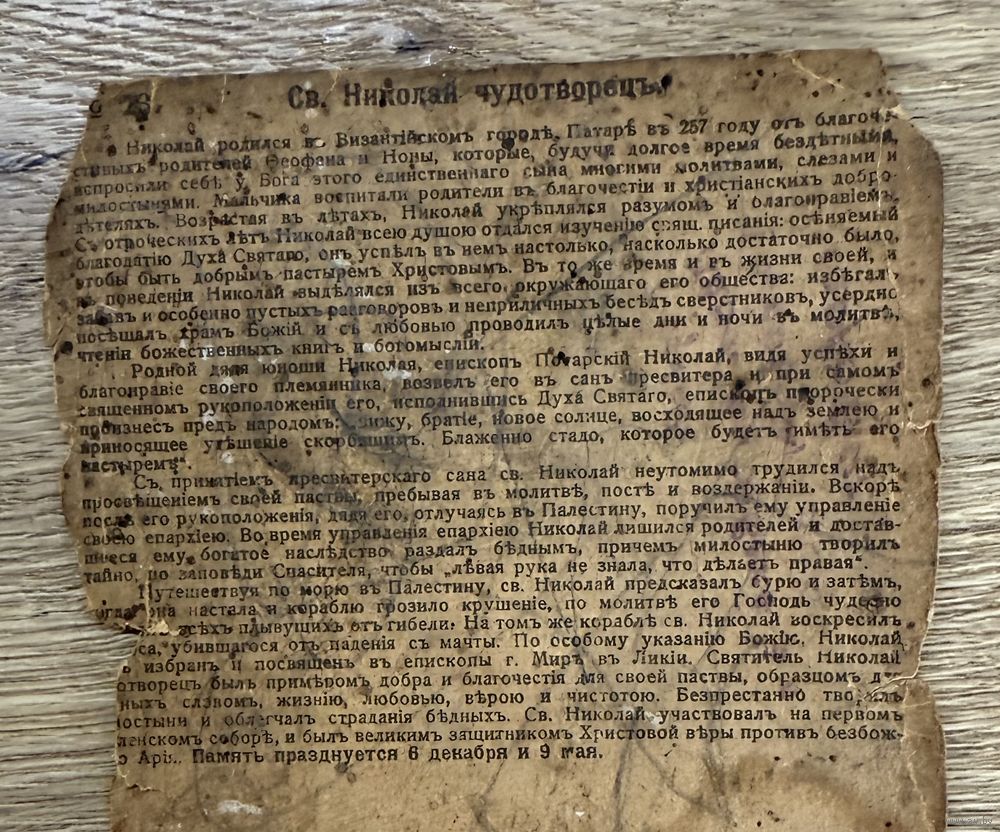 Св. Николай чудотворецъ.
Николай родился въ Византійскомъ городѣ Патарѣ въ 257 году отъ благоче-
стивыхъ родителей Ѳеофана и Ноны, которые, будучи долгое время бездѣтными,
испросили себѣ у Бога этого единственнаго сына многими молитвами, слезами и
милостынями. Мальчика воспитали родители въ благочестіи и христіанскихъ добро-
дѣтеляхъ. Возрастая въ лѣтахъ, Николай укрѣплялся разумомъ и благонравіемъ.
Съ отроческихъ лѣтъ Николай всею душою отдался изученію свящ. писанія: осѣняемый
благодатію Духа Святаго, онъ успѣлъ въ немъ настолько, насколько достаточно было,
чтобы быть добрымъ пастыремъ Христовымъ. Въ то же время и въ жизни своей, и
въ поведеніи Николай выдѣлялся изъ всего окружающаго его общества: избѣгалъ
забавъ и особенно пустыхъ разговоровъ и неприличныхъ бесѣдъ сверстниковъ, усердно
посѣщалъ храмъ Божій и съ любовью проводилъ цѣлые дни и ночи въ молитвѣ,
чтеніи божественныхъ книгъ и богомысліи.
Родной дядя юноши Николая, епископъ Потарскій Николай, видя успѣхи и
благонравіе своего племянника, возвелъ его въ санъ пресвитера и при самомъ
священномъ рукоположеніи его, исполнившись Духа Святаго, епископъ пророчески
произнесъ предъ народомъ: вижу, братіе, новое солнце, восходящее надъ землею и
приносящее утѣшеніе скорбящимъ. Блаженно стадо, которое будетъ имѣть его
пастыремъ“.
Съ принятіемъ пресвитерскаго сана св. Николай неутомимо трудился надъ
просвѣщеніемъ своей паствы, пребывая въ молитвѣ, постѣ и воздержаніи. Вскорѣ
послѣ его рукоположенія, дядя его, отлучаясь въ Палестину, поручилъ ему управленіе
своею епархіею. Во время управленія епархіею Николай лишился родителей и достав-
шееся ему богатое наслѣдство раздалъ бѣднымъ, причемъ милостыню творилъ
тайно, по заповѣди Спасителя, чтобы „лѣвая рука не знала, что дѣлаетъ правая“.
Путешествуя по морю въ Палестину, св. Николай предсказалъ бурю и затѣмъ,
когда она настала и кораблю грозило крушеніе, по молитвѣ его Господь чудесно
всѣхъ плывущихъ отъ гибели. На томъ же кораблѣ св. Николай воскресилъ
са, убившагося отъ паденія съ мачты. По особому указанію Божію, Николай
избранъ и посвященъ въ епископы г. Миръ въ Ликіи. Святитель Николай
отворецъ былъ примѣромъ добра и благочестія для своей паствы, образцомъ для
ныхъ словомъ, жизнію, любовью, вѣрою и чистотою. Безпрестанно творилъ
остыни и облегчалъ страданія бѣдныхъ. Св. Николай участвовалъ на первомъ
ленскомъ соборѣ, и былъ великимъ защитникомъ Христовой вѣры противъ безбож-
Память празднуется 6 декабря и 9 мая.